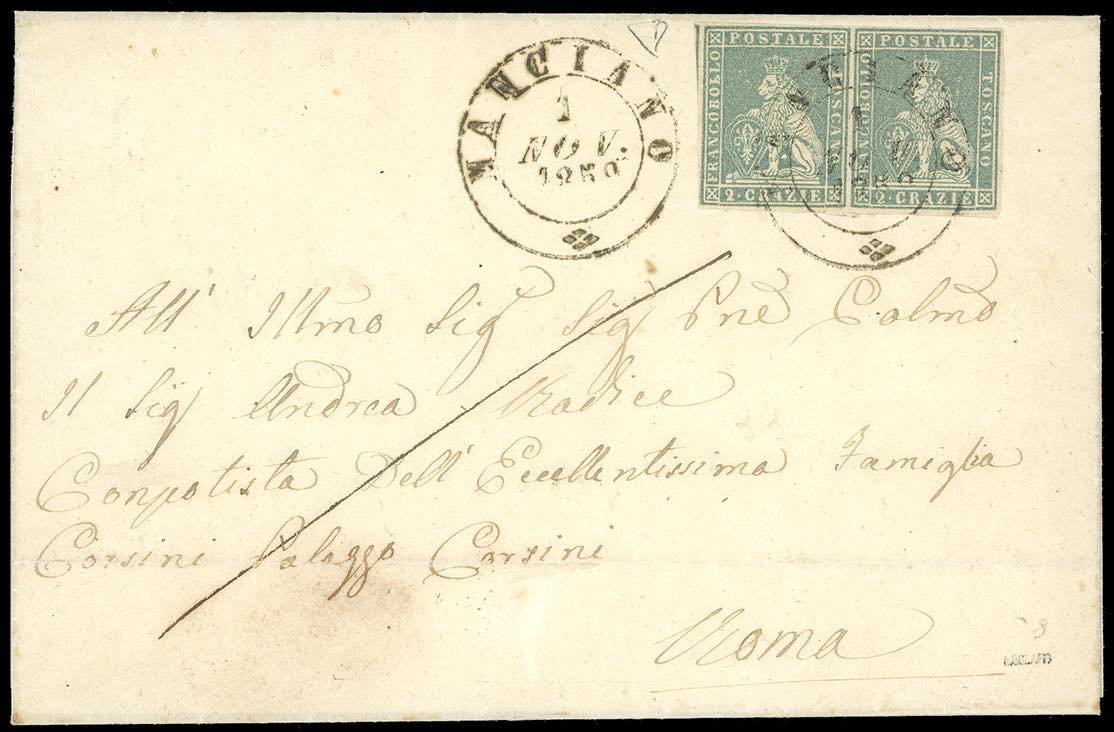 MANCIANO
1
NOV.
185
FRANCOBOLLO POSTALE TOSCANO
2·CRAZIE
FRANCOBOLLO POSTALE TOSCANO
2·CRAZIE
All' Illmo Sig Sig Pne Colmo
Il Sig Andrea Radice
Conpotista Dell' Eccellentissima Famiglia
Corsini Palazzo Corsini
Roma